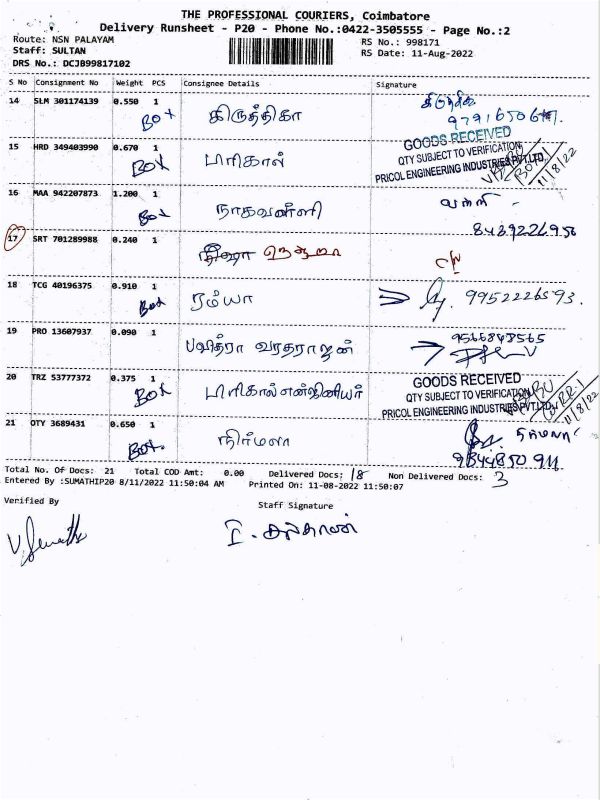 THE PROFESSIONAL COURIERS, Coimbatore
Delivery Runsheet - P20 - Phone No.:0422-3505555 - Page No.:2
Route: NSN PALAYAM
RS No.: 998171
Staff: SULTAN
RS Date: 11-Aug-2022
DRS No.: DCJB99817102
S No Consignment No Weight PCS Consignee Details Signature
14 SLM 301174139 0.550 1 BOX கிருத்திகா
GOODS RECEIVED
QTY SUBJECT TO VERIFICATION
PRICOL ENGINEERING INDUSTRIES PVT.LTD.
11/8/22
15 HRD 349403990 0.670 1 BOX பிரிகால்
16 MAA 942207873 1.200 1 BOX நாகவள்ளி வள்ளி
17 SRT 701289988 0.240 1
18 TCG 40196375 0.910 1 BOX ரம்யா
19 PRO 13607937 0.090 1 பவித்ரா வரதராஜன்
9566848565
20 TRZ 53777372 0.375 1 BOX பிரிகால் என்ஜினியர்
GOODS RECEIVED
QTY SUBJECT TO VERIFICATION
PRICOL ENGINEERING INDUSTRIES PVT.LTD.
11/8/22
21 OTY 3689431 0.650 1 BOX நிர்மலா நிர்மலா
Total No. Of Docs: 21 Total COD Amt: 0.00 Delivered Docs: 18 Non Delivered Docs: 3
Entered By :SUMATHIP20 8/11/2022 11:50:04 AM Printed On: 11-08-2022 11:50:07
Verified By
Staff Signature